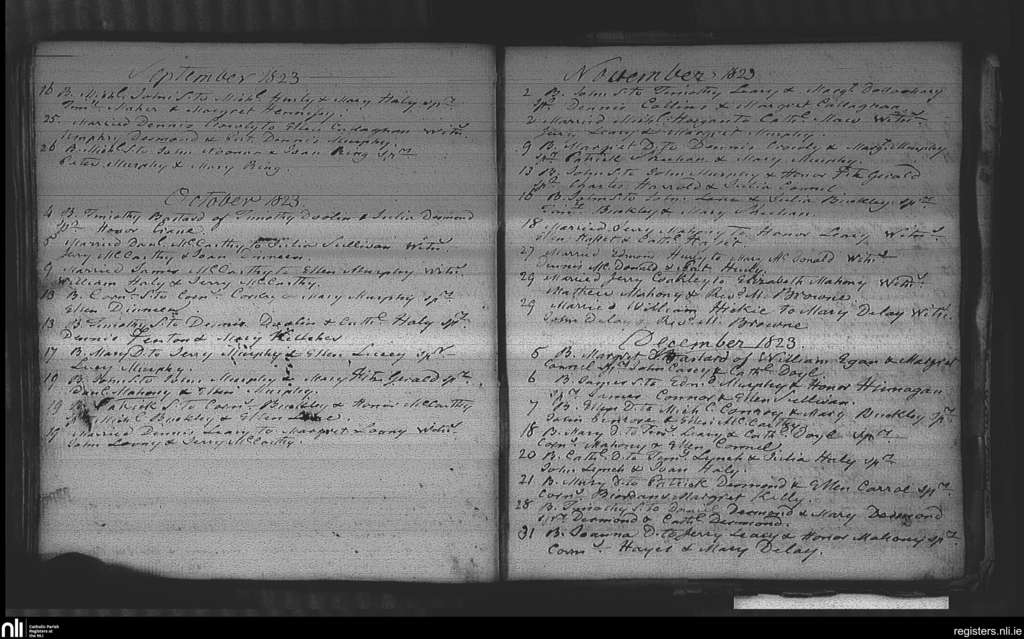 September 1823
16 B. Michl. John S. to Michl. Hurly & Mary Haly spr.
Timy. Maher & Margret Hennessy.
25 Married Dennis to Ellen Calaghan Witns.
Humphry Desmond & Dennis Murphy.
26 B. Michl. S. to John & Joan Ring spr.
Cates. Murphy & Mary Ring.
October 1823
4 B. Timothy Bastard of Timothy Doolin & Julia Desmond
spr. Honor Crane.
5 Married Danl. McCarthy to Julia Sullivan Witns.
Jery McCarthy & Joan Dinneen.
9 Married James McCarthy to Ellen Murphy Witns.
William Haly & Jerry McCarthy.
10 B. Corns. S. to Corns. & Mary Murphy spr.
Ellen Dinneen
13 B. Timothy S. to Dennis Doolin & Cathe. Haly spr.
Dennis Fenton & Mary Kelleher
17 B. Mary D. to Jerry Murphy & Ellen spr.
Murphy.
19 B. John S. to John Murphy & Mary Fitz Gerald spr.
Danl. Mahony & Ellen Murphy.
19 B. Patrick S. to Corns. Buckley & Honor McCarthy
spr. Michl. Buckley & Ellen
19 Married Dennis Leary to Margret Loony Witns.
John Loony & Jerry McCarthy.
November 1823
2 B. John S. to Timothy Leary & Margt.
Spr. Dennis Collins & Margret Callaghan
2 Married Michl. to Cathe. Witns.
Jerry Leary & Margret Murphy.
9 B. Margret D. to Dennis Crowly & Margt. Murphy
spr. Patrick Sheehan & Mary Murphy.
13 B. John S. to John Murphy & Honor Fitz Gerald
spr. Charles Harrold & Julia Connel
16 B. John S. to John Lane & Julia Buckley spr.
Timy. Buckley & Mary Sheehan.
18 Married Jerry Mahony to Honor Leary Witns.
& Cathe.
27 Married Edmond Hurly to Mary Mc Donald Witns.
Dennis McDonald & Hurly.
29 Married Jerry Coakley to Elizabeth Mahony Witns.
Mathew Mahony & Revd. M. Browne.
29 Married William Hickie to Mary Delay Witns.
John Delay & Revd. M. Browne
December 1823.
5 B. Margret Bastard of William Egan & Margret
Connel spr. John Casey & Cathe. Doyl.
6 B. James S. to Edmd. Murphy & Honor
spr. James Connor & Ellen Sullivan.
7 B. Ellen D. to Michl. Conroy & Mary Buckley spr.
& Ellen McCarthy
18 B. Mary D. to Timy. Leary & Cathe. Doyl spr.
Corns. Mahony & Ellen Connel
20 B. Cathe. D. to Jams. Lynch & Julia Haly spr.
John Lynch & Joan Haly.
21 B. Mary D. to Patrick Desmond & Ellen Carrol spr.
Corns. Riordan & Margret Killy.
28 B. Timothy S. to Daniel Desmond & Mary Desmond
spr. Desmond & Cathe. Desmond.
31 B. Joanna D. to Jerry Leacy & Honor Mahony spr.
Corns. Hayes & Mary Delay.
nli
Catholic Parish
Registers at
the NLI
registers.nli.ie